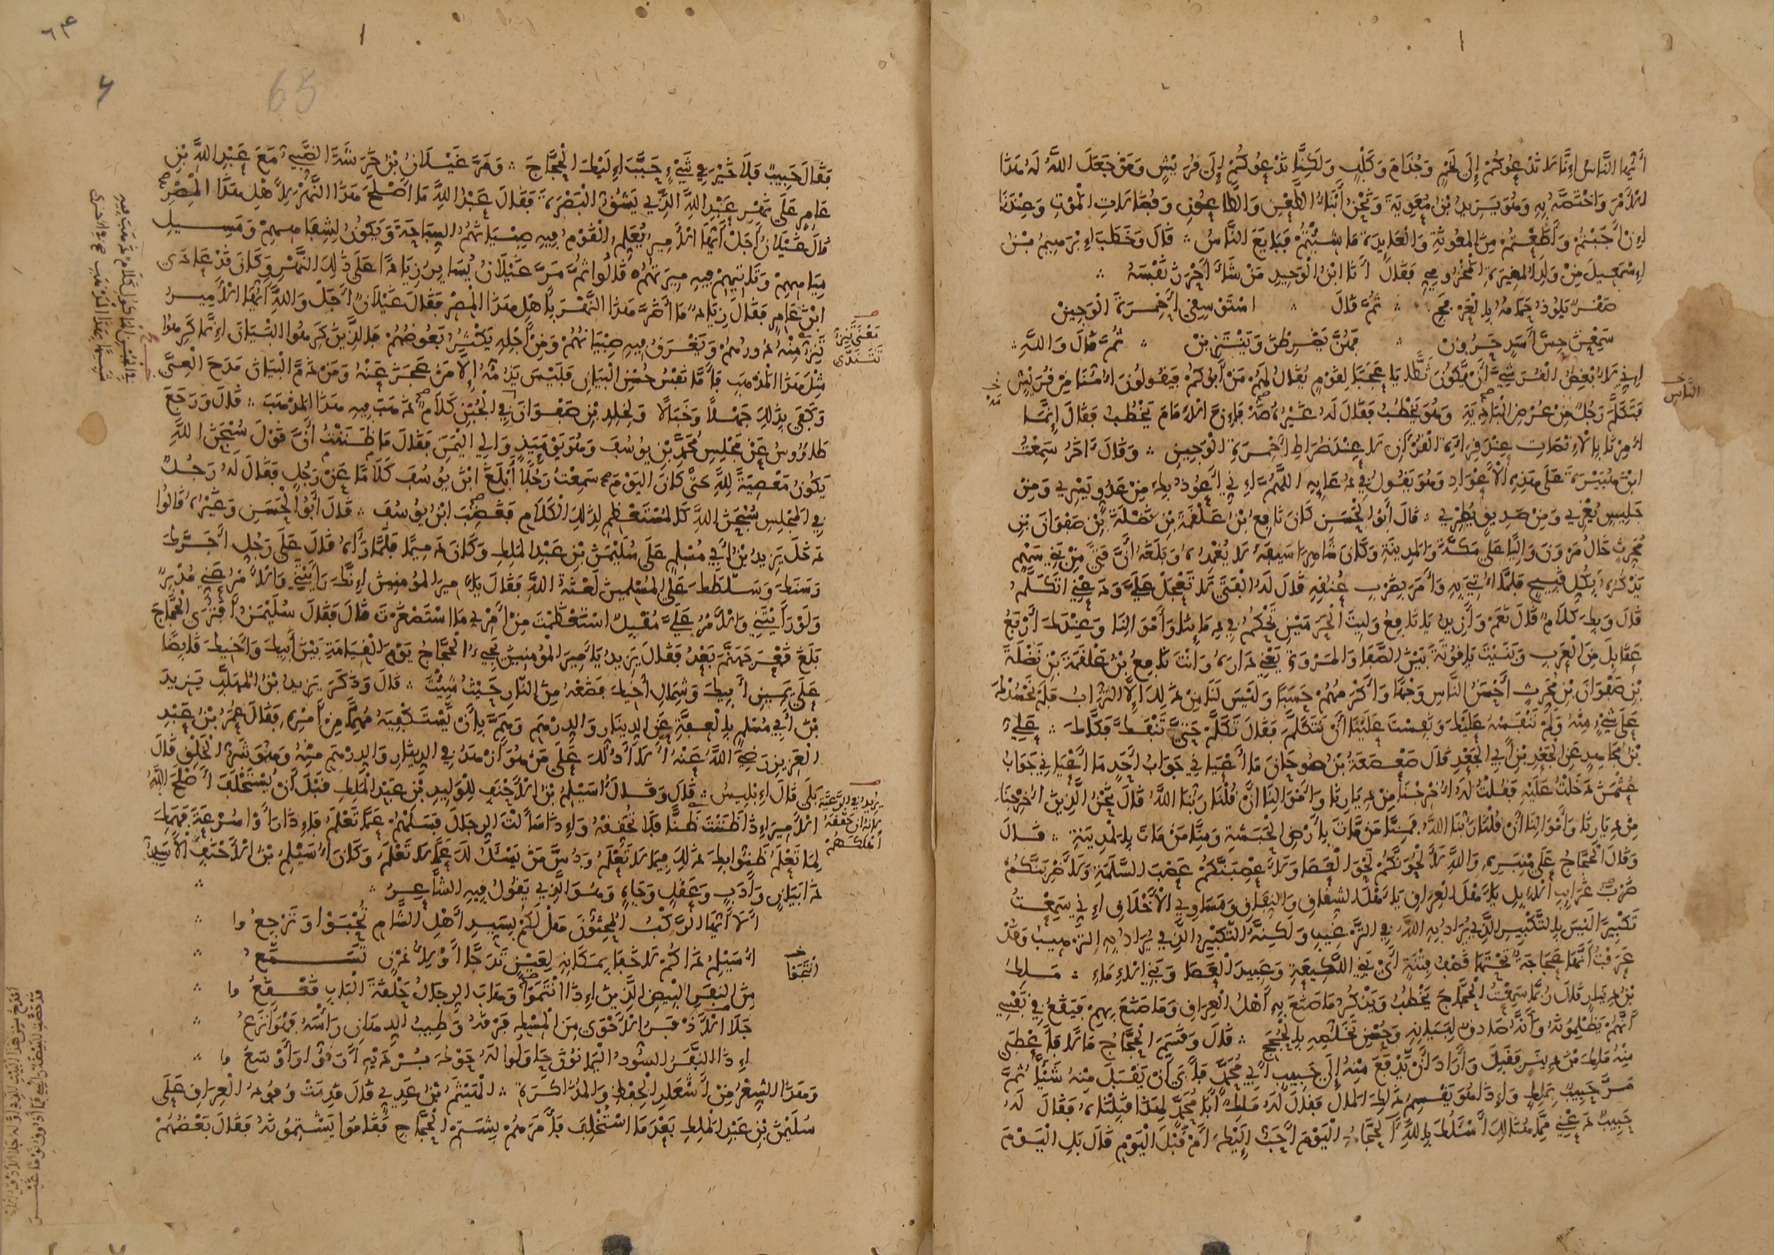 أَيُّهَا النَّاسُ إِنَّا لَا نَدْعُوكُمْ إِلَى لَخْمٍ وَجُذَامَ وَكَلْبٍ وَلَكِنَّا نَدْعُوكُمْ إِلَى قُرَيْشٍ وَمَنْ جَعَلَ اللَّهُ لَهُ هَذَا
الأَمْرَ وَاخْتَصَّهُ بِهِ وَهُوَ يَزِيدُ بْنُ مُعَوِيَةَ وَنَحْنُ أَبْنَاءُ الطَّعْنِ وَالطَّاعُونِ وَفُضَالَاتِ الْمَوْتِ وَعِنْدَنَا
إِنْ أَجَبْتُمْ وَأَطَعْتُمْ مِنَ الْمَعُونَةِ وَالْعَائِدَةِ مَا شِئْتُمْ فَبَايَعَ النَّاسُ قَالَ وَخَطَبَ إِبْرَهِيمُ بْنُ
إِسْمَعِيلَ مِنْ وَلَدِ الْمُغِيرَةِ الْمَخْزُومِيِّ فَقَالَ أَنَا ابْنُ الْوَحِيدِ مَنْ شَاءَ أَجْزَرَ نَفْسَهُ
صَقْرٌ يَلُوذُ حَمَامُهُ بِالْعَرْفَجِ ثُمَّ قَالَ اسْتَوْسِقِي أَحْمِرَةَ الْوَجِينِ
سَمِعْنَ حِسَّ أَسَدٍ حَرُونِ فَهُنَّ يَضْرِطْنَ وَيَنْتَزِينَ ثُمَّ قَالَ وَاللَّهِ
إِنِّي لَأُبْغِضُ الْقُرَشِيَّ أَنْ يَكُونَ فَظًّا يَا عَجَبًا لِقَوْمٍ يُقَالُ لَهُمْ مَنْ أَبُوكُمْ فَيَقُولُونَ أُمُّنَا مِنْ قُرَيْشٍ
فَتَكَلَّمَ رَجُلٌ مِنْ عُرْضِ النَّاسِ وَهُوَ يَخْطُبُ فَقَالَ لَهُ غَيْرُهُ مَهْ فَإِنَّ الْإِمَامَ يَخْطُبُ فَقَالَ إِنَّمَا
أُمِرْنَا بِالْإِنْصَاتِ عِنْدَ قِرَاءَةِ الْقُرْآنِ لَا عِنْدَ ضُرَاطِ أَحْمِرَةِ الْوَجِينِ وَقَالَ آخَرُ سَمِعْتُ
ابْنَ هُبَيْرَةَ عَلَى هَذِهِ الْأَعْوَادِ وَهُوَ يَقُولُ فِي دُعَائِهِ اللَّهُمَّ إِنِّي أَعُوذُ بِكَ مِنْ عَدُوٍّ يَسْرِي وَمِنْ
جَلِيسٍ يُغْرِي وَمِنْ صَدِيقٍ يُطْرِي قَالَ أَبُو الْحَسَنِ كَانَ نَافِعُ بْنُ عَلْقَمَةَ بْنِ نَضْلَةَ بْنِ صَفْوَانَ بْنِ
مُحَرِّثٍ خَالُ مَرْوَنَ وَالِيًا عَلَى مَكَّةَ وَالْمَدِينَةِ وَكَانَ شَاهِرًا سَيْفَهُ لَا يُغْمِدُهُ وَبَلَغَهُ أَنَّ فَتًى مِنْ بَنِي سَهْمٍ
يَذْكُرُهُ بِكُلِّ قَبِيحٍ فَلَمَّا أُتِيَ بِهِ وَأَمَرَ بِضَرْبِ عُنُقِهِ قَالَ لَهُ الْفَتَى لَا تَعْجَلْ عَلَيَّ وَدَعْنِي أَتَكَلَّمُ
قَالَ وَبِكَ كَلَامٌ قَالَ نَعَمْ وَأَزِيدُ يَا نَافِعُ وَلِيتَ الْحَرَمَيْنِ تَحْكُمُ فِي دِمَائِنَا وَأَمْوَالِنَا وَعِنْدَكَ أَرْبَعُ
عَقَائِلَ مِنَ الْعَرَبِ وَبَنَيْتَ يَاقُوتَةً بَيْنَ الصَّفَا وَالْمَرْوَةِ يَعْنِي دَارَهُ وَأَنْتَ نَافِعُ بْنُ عَلْقَمَةَ بْنِ نَضْلَةَ
بْنِ صَفْوَانَ بْنِ مُحَرِّثٍ أَحْسَنُ النَّاسِ وَجْهًا وَأَكْرَمُهُمْ حَسَبًا وَلَيْسَ لَنَا مِنْ ذَلِكَ إِلَّا التُّرَابُ فَلَمْ نَحْسُدْكَ
عَلَى شَيْءٍ مِنْهُ وَلَمْ نَنْفَسْهُ عَلَيْكَ وَنَفِسْتَ عَلَيْنَا أَنْ نَتَكَلَّمَ فَقَالَ تَكَلَّمْ حَتَّى يَنْفَكَّ فَكَّاكَ عَلِيُّ
بْنُ مُجَاهِدٍ عَنِ الْجَعْدِ بْنِ أَبِي الْجَعْدِ قَالَ صَعْصَعَةُ بْنُ صُوحَانَ مَا أَعْيَانِي جَوَابُ أَحَدٍ مَا أَعْيَانِي جَوَابُ
عُثْمَنَ دَخَلْتُ عَلَيْهِ فَقُلْتُ لَهُ أُخْرِجْنَا مِنْ دِيَارِنَا وَأَمْوَالِنَا أَنْ قُلْنَا رَبُّنَا اللَّهُ قَالَ نَحْنُ الَّذِينَ أُخْرِجْنَا
مِنْ دِيَارِنَا وَأَمْوَالِنَا أَنْ قُلْنَا رَبُّنَا اللَّهُ فَمِنَّا مَنْ مَاتَ بِأَرْضِ الْحَبَشَةِ وَمِنَّا مَنْ مَاتَ بِالْمَدِينَةِ قَالَ
وَقَالَ الْحَجَّاجُ عَلَى مِنْبَرِهِ وَاللَّهِ لَأَلْحُوَنَّكُمْ لَحْوَ الْعَصَا وَلَأَعْصِبَنَّكُمْ عَصْبَ السَّلَمَةِ وَلَأَضْرِبَنَّكُمْ
ضَرْبَ غَرَائِبِ الْإِبِلِ يَا أَهْلَ الْعِرَاقِ يَا أَهْلَ الشِّقَاقِ وَالنِّفَاقِ وَمَسَاوِي الْأَخْلَاقِ إِنِّي سَمِعْتُ
تَكْبِيرًا لَيْسَ بِالتَّكْبِيرِ الَّذِي يُرَادُ بِهِ اللَّهُ فِي التَّرْغِيبِ وَلَكِنَّهُ التَّكْبِيرُ الَّذِي يُرَادُ بِهِ التَّرْهِيبُ وَقَدْ
عَرَفْتُ أَنَّهَا عَجَاجَةٌ تَحْتَهَا قَصْفُ فِتْنَةٍ أَيْ بَنِي اللَّكِيعَةِ وَعَبِيدَ الْعَصَا وَبَنِي الْإِمَاءِ مَلِكُ
بْنُ دِينَارٍ قَالَ رُبَّمَا سَمِعْتُ الْحَجَّاجَ يَخْطُبُ وَيَذْكُرُ مَا صَنَعَ بِهِ أَهْلُ الْعِرَاقِ وَمَا صَنَعَ بِهِمْ فَيَقَعُ فِي نَفْسِي
أَنَّهُمْ يَظْلِمُونَهُ وَأَنَّهُ صَادِقٌ لِبَيَانِهِ وَحُسْنِ تَخَلُّصِهِ بِالْحُجَجِ قَالَ وَقَسَمَ الْحَجَّاجُ مَالًا فَأَعْطَى
مِنْهُ مَلِكَ بْنَ دِينَارٍ فَقَبِلَ وَأَرَادَ أَنْ يَدْفَعَ مِنْهُ إِلَى حَبِيبٍ أَبِي مُحَمَّدٍ فَأَبَى أَنْ يَقْبَلَ مِنْهُ شَيْئًا ثُمَّ
مَرَّ حَبِيبٌ بِمَلِكٍ وَإِذَا هُوَ يَقْسِمُ ذَلِكَ الْمَالَ فَقَالَ لَهُ مَلِكٌ أَبَا مُحَمَّدٍ لِهَذَا قَبِلْنَاهُ فَقَالَ لَهُ
حَبِيبٌ دَعْنِي مِمَّا هُنَاكَ أَسْأَلُكَ بِاللَّهِ آلْحَجَّاجُ الْيَوْمَ أَحَبُّ إِلَيْكَ أَمْ قَبْلَ الْيَوْمِ قَالَ بَلِ الْيَوْمَ
65
فَقَالَ حَبِيبٌ فَلَا خَيْرَ فِي شَيْءٍ حَبَّبَ إِلَيْكَ الْحَجَّاجَ وَمَرَّ غَيْلَانُ بْنُ خَرَشَةَ الضَّبِّيُّ مَعَ عَبْدِ اللَّهِ بْنِ
عَامِرٍ عَلَى نَهْرِ عَبْدِ اللَّهِ الَّذِي يَشُقُّ الْبَصْرَةَ فَقَالَ عَبْدُ اللَّهِ مَا أَصْلَحَ هَذَا النَّهْرَ لِأَهْلِ هَذَا الْمِصْرِ
قَالَ غَيْلَانُ أَجَلْ أَيُّهَا الْأَمِيرُ يُعَلِّمُ الْقَوْمُ فِيهِ صِبْيَانَهُمُ السِّبَاحَةَ وَيَكُونُ لِشِفَاهِهِمْ وَمَسِيلِ
مِيَاهِهِمْ وَتَأْتِيهِمْ فِيهِ مِيرَتُهُمْ قَالُوا ثُمَّ مَرَّ غَيْلَانُ يُسَايِرُ زِيَادًا عَلَى ذَلِكَ النَّهْرِ وَكَانَ قَدْ عَادَى
ابْنَ عَامِرٍ فَقَالَ زِيَادٌ مَا أَضَرَّ هَذَا النَّهْرَ بِأَهْلِ هَذَا الْمِصْرِ فَقَالَ غَيْلَانُ أَجَلْ وَاللَّهِ أَيُّهَا الْأَمِيرُ
تَنِزُّ مِنْهُ دُورُهُمْ وَتَغْرَقُ فِيهِ صِبْيَانُهُمْ وَمِنْ أَجْلِهِ يَكْثُرُ بَعُوضُهُمْ فَالَّذِينَ كَرِهُوا الْبَيَانَ إِنَّمَا كَرِهُوا
مِثْلَ هَذَا الْمَذْهَبِ فَأَمَّا نَفْسُ حُسْنِ الْبَيَانِ فَلَيْسَ يَذُمُّهُ إِلَّا مَنْ عَجَزَ عَنْهُ وَمَنْ ذَمَّ الْبَيَانَ مَدَحَ الْعِيَّ
وَكَفَى بِذَلِكَ جَهْلًا وَخَبَالًا وَلِخَالِدِ بْنِ صَفْوَانَ فِي الْجُبْنِ كَلَامٌ ذَهَبَ فِيهِ هَذَا الْمَذْهَبَ قَالَ وَرَجَعَ
طَاوُوسٌ عَنْ مَجْلِسِ مُحَمَّدِ بْنِ يُوسُفَ وَهُوَ يَوْمَئِذٍ وَالِي الْيَمَنِ فَقَالَ مَا ظَنَنْتُ أَنَّ قَوْلَ سُبْحَنَ اللَّهِ
يَكُونُ مَعْصِيَةً لِلَّهِ حَتَّى كَانَ الْيَوْمَ سَمِعْتُ رَجُلًا أَبْلَغَ ابْنَ يُوسُفَ كَلَامًا عَنْ رَجُلٍ فَقَالَ لَهُ رَجُلٌ
فِي الْمَجْلِسِ سُبْحَنَ اللَّهِ كَالْمُسْتَعْظِمِ لِذَلِكَ الْكَلَامِ فَغَضِبَ ابْنُ يُوسُفَ قَالَ أَبُو الْحَسَنِ وَغَيْرُهُ قَالُوا
دَخَلَ يَزِيدُ بْنُ أَبِي مُسْلِمٍ عَلَى سُلَيْمَنَ بْنِ عَبْدِ الْمَلِكِ وَكَانَ دَمِيمًا فَلَمَّا رَآهُ قَالَ عَلَى رَجُلٍ أَجَرَّكَ
رَسَنَكَ وَسَلَّطَكَ عَلَى الْمُسْلِمِينَ لَعْنَةُ اللَّهِ فَقَالَ يَا أَمِيرَ الْمُؤْمِنِينَ إِنَّكَ رَأَيْتَنِي وَالْأَمْرُ عَنِّي مُدْبِرٌ
وَلَوْ رَأَيْتَنِي وَالْأَمْرُ عَلَيَّ مُقْبِلٌ اسْتَعْظَمْتَ مِنْ أَمْرِي مَا اسْتَصْغَرْتَ قَالَ فَقَالَ سُلَيْمَنُ أَفَتُرَى الْحَجَّاجَ
بَلَغَ قَعْرَ جَهَنَّمَ بَعْدُ فَقَالَ يَزِيدُ يَا أَمِيرَ الْمُؤْمِنِينَ يَجِيءُ الْحَجَّاجُ يَوْمَ الْقِيَامَةِ بَيْنَ أَبِيكَ وَأَخِيكَ قَابِضًا
عَلَى يَمِينِ أَبِيكَ وَشِمَالِ أَخِيكَ فَضَعْهُ مِنَ النَّارِ حَيْثُ شِئْتَ قَالَ وَذَكَرَ يَزِيدُ بْنُ الْمُهَلَّبِ يَزِيدَ
بْنَ أَبِي مُسْلِمٍ بِالْعِفَّةِ عَنِ الدِّينَارِ وَالدِّرْهَمِ وَهَمَّ بِأَنْ يَسْتَكْفِيَهُ مُهِمًّا مِنْ أَمْرِهِ فَقَالَ عُمَرُ بْنُ عَبْدِ
الْعَزِيزِ رَضِيَ اللَّهُ عَنْهُ أَلَا أَدُلُّكَ عَلَى مَنْ هُوَ أَزْهَدُ فِي الدِّينَارِ وَالدِّرْهَمِ مِنْهُ وَهُوَ شَرُّ الْخَلْقِ قَالَ
بَلَى قَالَ إِبْلِيسُ قَالَ وَقَالَ أُسَيْلِمُ بْنُ الْأَحْنَفِ لِلْوَلِيدِ بْنِ عَبْدِ الْمَلِكِ قَبْلَ أَنْ يُسْتَخْلَفَ أَصْلَحَ اللَّهُ
الْأَمِيرَ إِذَا ظَنَنْتَ ظَنًّا فَلَا تُحَقِّقْهُ وَإِذَا سَأَلْتَ الرِّجَالَ فَسَلْهُمْ عَمَّا تَعْلَمُ فَإِذَا رَأَوْا سُرْعَةَ فَهْمِكَ
لِمَا تَعْلَمُ ظَنُّوا بِكَ ذَلِكَ فِيمَا لَا تَعْلَمُ وَدُسَّ مَنْ يَسْأَلُ لَكَ عَمَّا لَا تَعْلَمُ وَكَانَ أُسَيْلِمُ بْنُ الْأَحْنَفِ الْأَسَدِيُّ
ذَا بَيَانٍ وَأَدَبٍ وَعَقْلٍ وَجَاهٍ وَهُوَ الَّذِي يَقُولُ فِيهِ الشَّاعِرُ
أَلَا أَيُّهَا الرَّكْبُ الْمُخِبُّونَ هَلْ لَكُمْ بِسَيِّدِ أَهْلِ الشَّامِ تُحْبَوْا وَتَرْجِعُوا
أُسَيْلِمُ ذَاكُمْ لَا خَفَا بِمَكَانِهِ لِعَيْنٍ تُدَجَّا أَوْ لِأُذْنٍ تَسَمَّعُ
مِنَ النَّفَرِ الْبِيضِ الَّذِينَ إِذَا انْتَمَوْا وَهَابَ الرِّجَالُ حَلْقَةَ الْبَابِ قَعْقَعُوا
جَلَا الْأَذْفَرُ الْأَحْوَى مِنَ الْمِسْكِ فَرْقَهُ وَطِيبُ الدِّهَانِ رَأْسَهُ فَهُوَ أَنْزَعُ
إِذَا النَّفَرُ السُّودُ الْيَمَانُونَ حَاوَلُوا لَهُ حَوْكَ بُرْدَيْهِ أَرَقُّوا وَأَوْسَعُوا
وَهَذَا الشِّعْرُ مِنْ أَشْعَارِ الْحِفْظِ وَالْمُذَاكَرَةِ الْهَيْثَمُ بْنُ عَدِيٍّ قَالَ قَدِمَتْ وُفُودُ الْعِرَاقِ عَلَى
سُلَيْمَنَ بْنِ عَبْدِ الْمَلِكِ بَعْدَ مَا اسْتُخْلِفَ فَأَمَرَهُمْ بِشَتْمِ الْحَجَّاجِ فَقَامُوا يَشْتِمُونَهُ فَقَالَ بَعْضُهُمْ